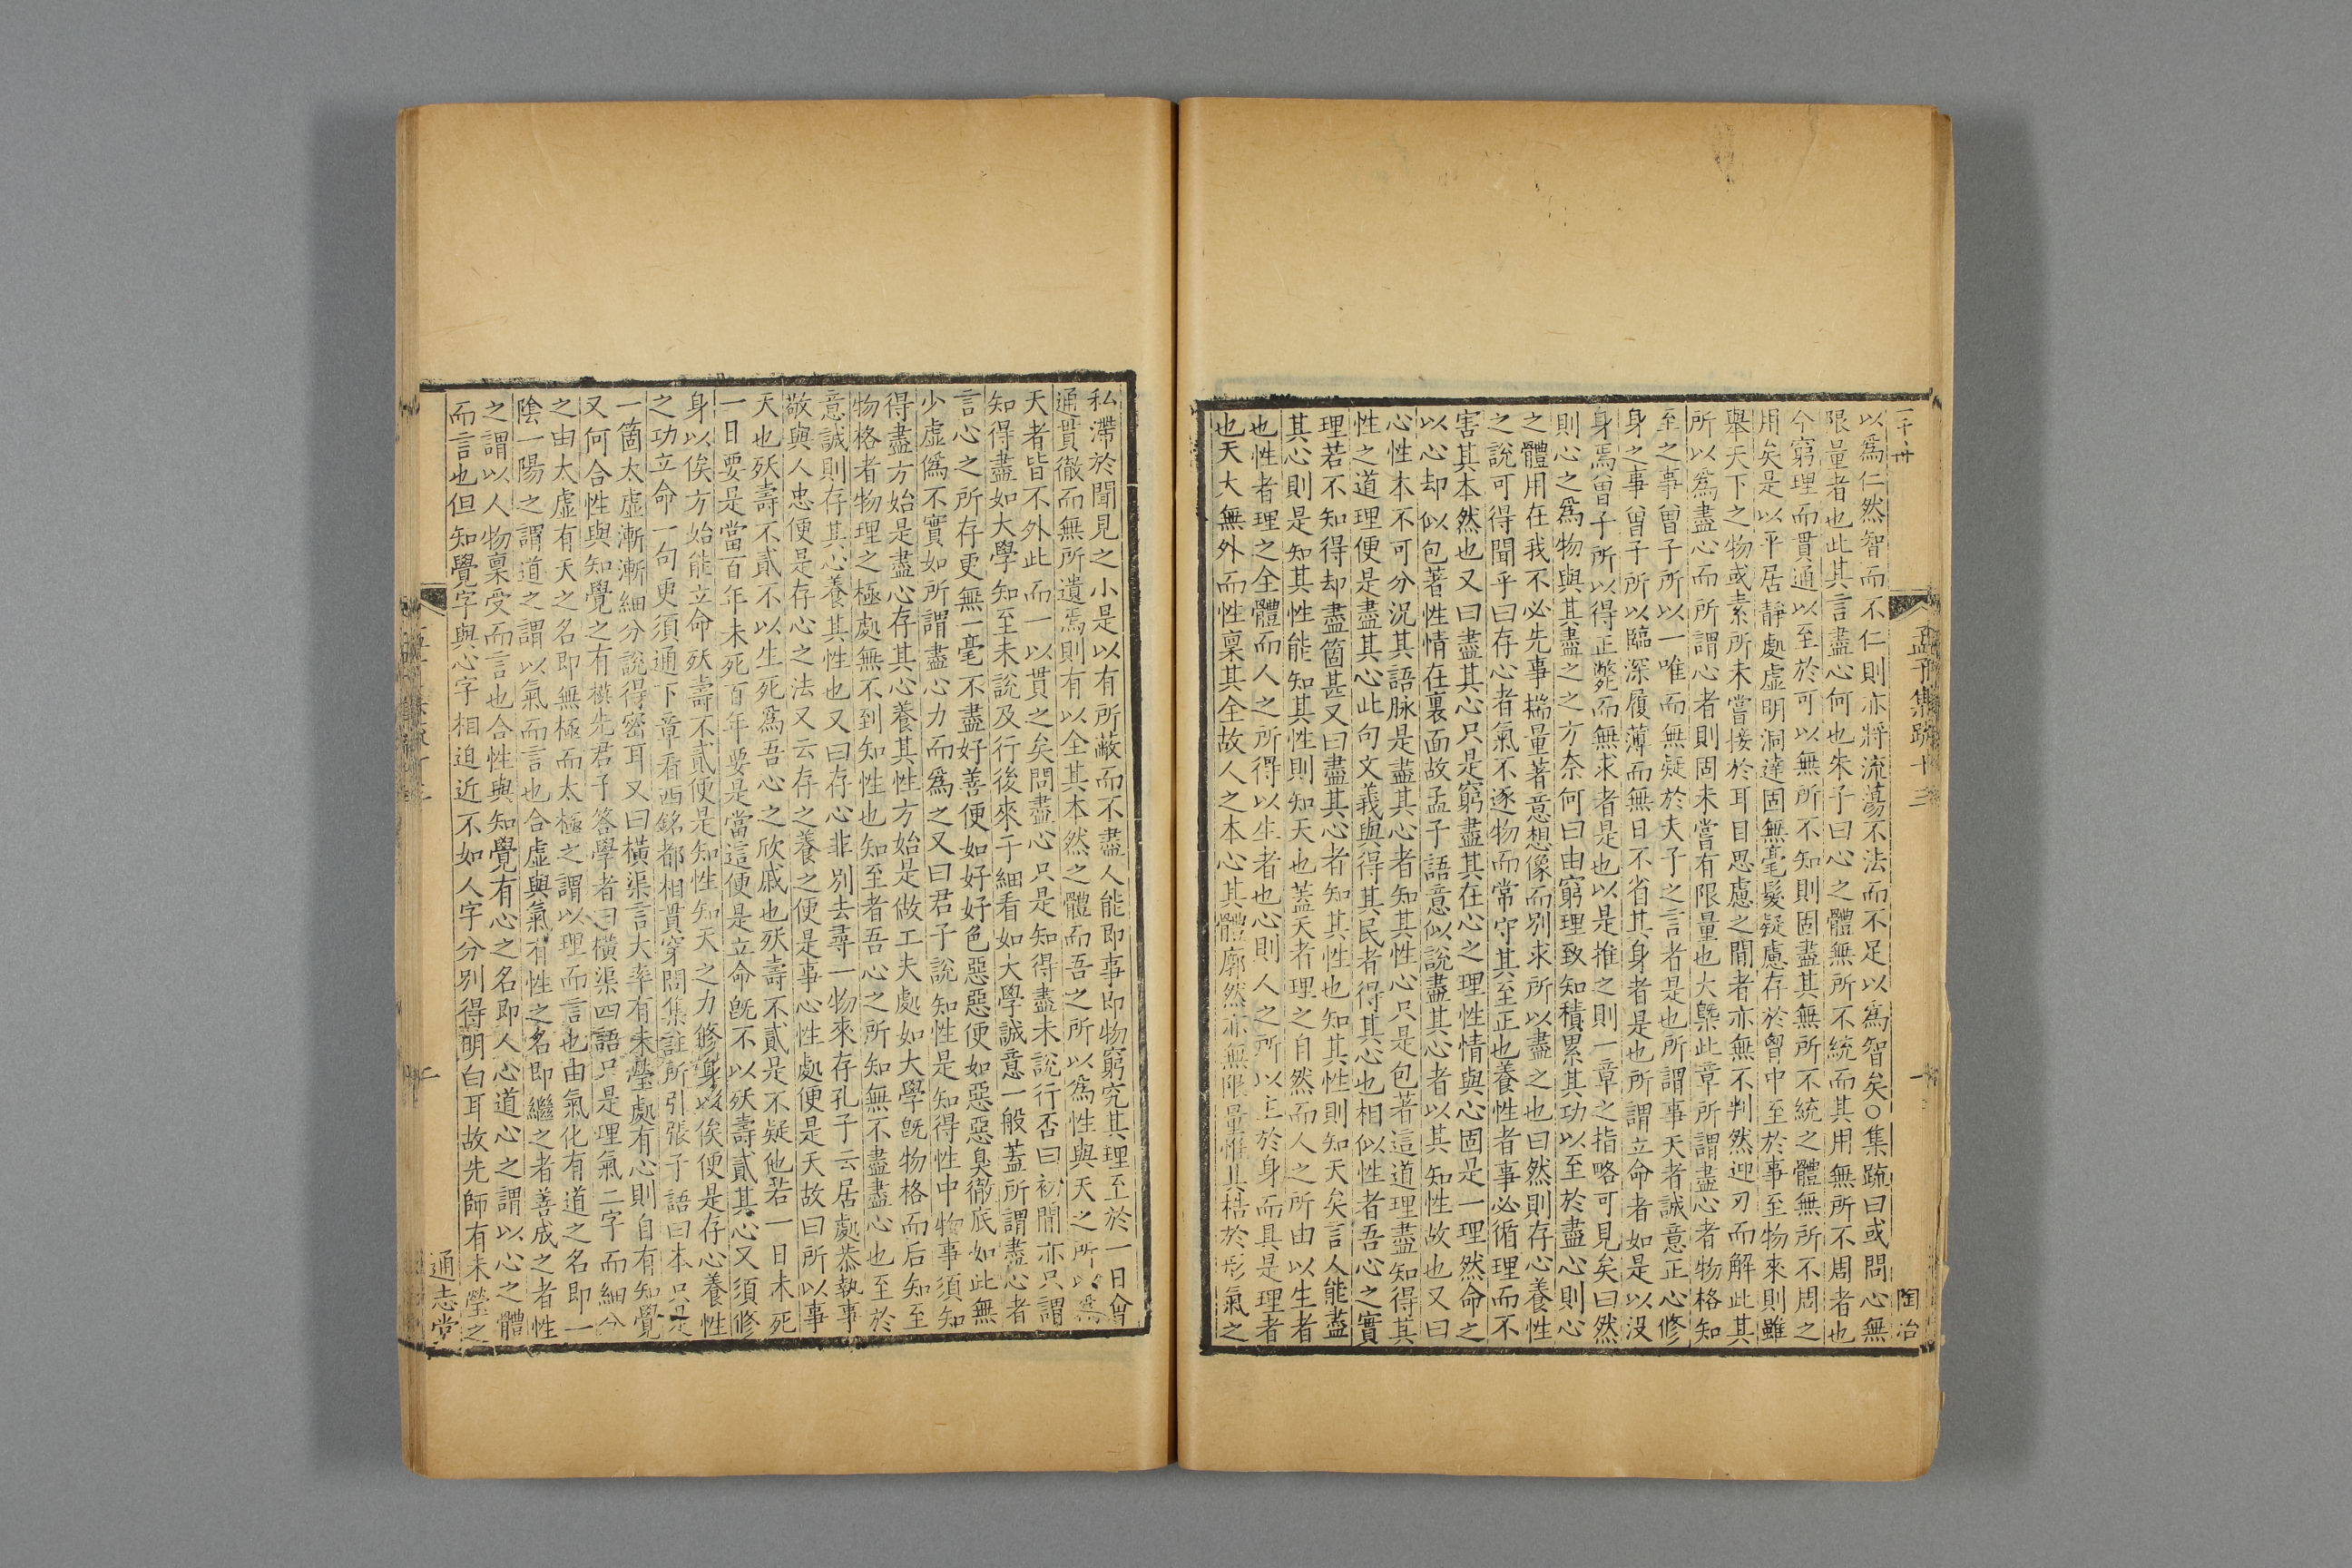 以爲仁然智而不仁則亦將流蕩不法而不足以爲智矣○集疏曰或問心無
限量者也此其言盡心何也朱子曰心之體無所不統而其用無所不周者也
今窮理而貫通以至於可以無所不知則固盡其無所不統之體無所不周之
用矣是以平居靜處虛明洞達固無毫髮疑慮存於胷中至於事至物來則雖
舉天下之物或素所未嘗接於耳目思慮之間者亦無不判然迎刃而解此其
所以爲盡心而所謂心者則固未嘗有限量也大槩此章所謂盡心者物格知
至之事曾子所以一唯而無疑於夫子之言者是也所謂事天者誠意正心修
身之事曾子所以臨深履薄而無日不省其身者是也所謂立命者如是以没
身焉曾子所以得正斃而無求者是也以是推之則一章之指略可見矣曰然
則心之爲物與其盡之之方奈何曰由窮理致知積累其功以至於盡心則心
之體用在我不必先事揣量著意想像而别求所以盡之也曰然則存心養性
之說可得聞乎曰存心者氣不逐物而常守其至正也養性者事必循理而不
害其本然也又曰盡其心只是窮盡其在心之理性情與心固是一理然命之
以心却似包著性情在裏面故孟子語意似說盡其心者以其知性故也又曰
心性本不可分況其語脉是盡其心者知其性心只是包著這道理盡知得其
性之道理便是盡其心此句文義與得其民者得其心也相似性者吾心之實
理若不知得却盡箇甚又曰盡其心者知其性也知其性則知天矣言人能盡
其心則是知其性能知其性則知天也蓋天者理之自然而人之所由以生者
也性者理之全體而人之所得以生者也心則人之所以主於身而具是理者
也天大無外而性稟其全故人之本心其體廓然亦無限量惟其梏於形氣之
孟子集疏十三
陶冶
私滯於聞見之小是以有所蔽而不盡人能即事即物窮究其理至於一日會
通貫徹而無所遺焉則有以全其本然之體而吾之所以爲性與天之所以爲
天者皆不外此而一以貫之矣問盡心只是知得盡未說行否曰初間亦只謂
知得盡如大學知至未說及行後來子細看如大學誠意一般蓋所謂盡心者
言心之所存更無一毫不盡好善便如好好色惡惡便如惡惡臭徹底如此無
少虛僞不實如所謂盡心力而爲之又曰君子說知性是知得性中物事須知
得盡方始是盡心存其心養其性方始是做工夫處如大學旣物格而后知至
物格者物理之極處無不到知性也知至者吾心之所知無不盡盡心也至於
意誠則存其心養其性也又曰存心非别去尋一物來存孔子云居處恭執事
敬與人忠便是存心之法又云存之養之便是事心性處便是天故曰所以事
天也殀壽不貳不以生死爲吾心之欣戚也殀壽不貳是不疑他若一日未死
一日要是當百年未死百年要是當這便是立命旣不以殀壽貳其心又須修
身以俟方始能立命殀壽不貳便是知性知天之力修身以俟便是存心養性
之功立命一句更須通下章看西銘都相貫穿問集註所引張子語曰本只是
一箇太虛漸漸細分說得密耳又曰橫渠言大率有未瑩處有心則自有知覺
又何合性與知覺之有模先君子答學者曰橫渠四語只是理氣二字而細分
之由太虛有天之名即無極而太極之謂以理而言也由氣化有道之名即一
陰一陽之謂道之謂以氣而言也合虛與氣有性之名即繼之者善成之者性
之謂以人物稟受而言也合性與知覺有心之名即人心道心之謂以心之體
而言也但知覺字與心字相迫近不如人字分别得明白耳故先師有未瑩之
通志堂